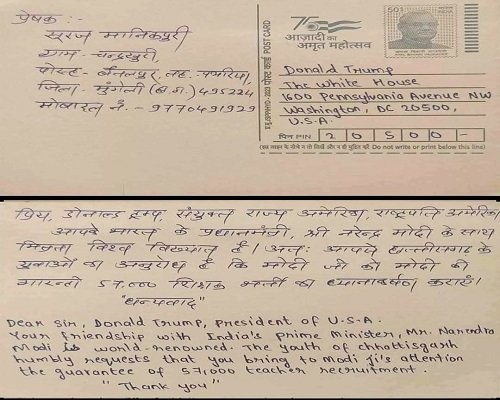 प्रेषक :-
सूरज मानिकपुरी
ग्राम- चन्द्रखुरी,
पोस्ट- बैतलपुर, तह. पथरिया,
जिला- मुंगेली (छ.ग.) 495224
मोबाइल नं. - 9770491929
पोस्ट कार्ड POST CARD
75
आज़ादी का
अमृत महोत्सव
501
भारत INDIA
Donald Trump
The White House
1600 Pennsylvania Avenue NW
Washington, DC 20500,
U.S.A.
पिन PIN 2 0 5 0 0 -
(इस लाइन के नीचे न तो लिखें और न ही मुद्रित करें Do not write or print below this line)
प्रिय, डोनाल्ड ट्रम्प, संयुक्त राज्य अमेरिका, राष्ट्रपति अमेरिका
आपके भारत के प्रधानमंत्री, श्री नरेन्द्र मोदी के साथ
मित्रता विश्व विख्यात है। अतः आपसे छत्तीसगढ़ के
युवाओं का अनुरोध है कि मोदी जी को मोदी की
गारन्टी 57,000 शिक्षक भर्ती का ध्यानाकर्षण कराएं।
"धन्यवाद"
Dear Sir, Donald Trump, President of U.S.A.
Your friendship with India's Prime Minister, Mr. Narendra
Modi is world-renowned. The youth of chhattisgarh
humbly requests that you bring to Modi ji's attention
the guarantee of 57,000 teacher recruitment.
"Thank you"